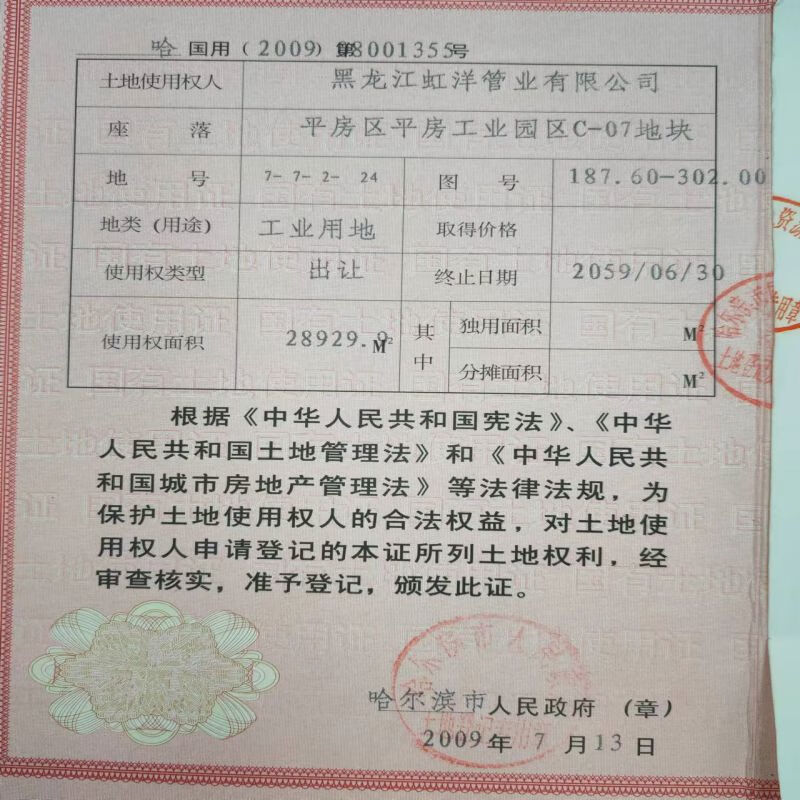 哈 国用（2009）第8001355号
土地使用权人 黑龙江虹洋管业有限公司
座 落 平房区平房工业园区C-07地块
地 号 7-7-2-24 图 号 187.60-302.00
地类（用途） 工业用地 取得价格
使用权类型 出让 终止日期 2059/06/30
使用权面积 28929.9M² 其中 独用面积 M²
分摊面积 M²
根据《中华人民共和国宪法》、《中华
人民共和国土地管理法》和《中华人民共
和国城市房地产管理法》等法律法规，为
保护土地使用权人的合法权益，对土地使
用权人申请登记的本证所列土地权利，经
审查核实，准予登记，颁发此证。
哈尔滨市人民政府（章）
2009年 7 月 13 日